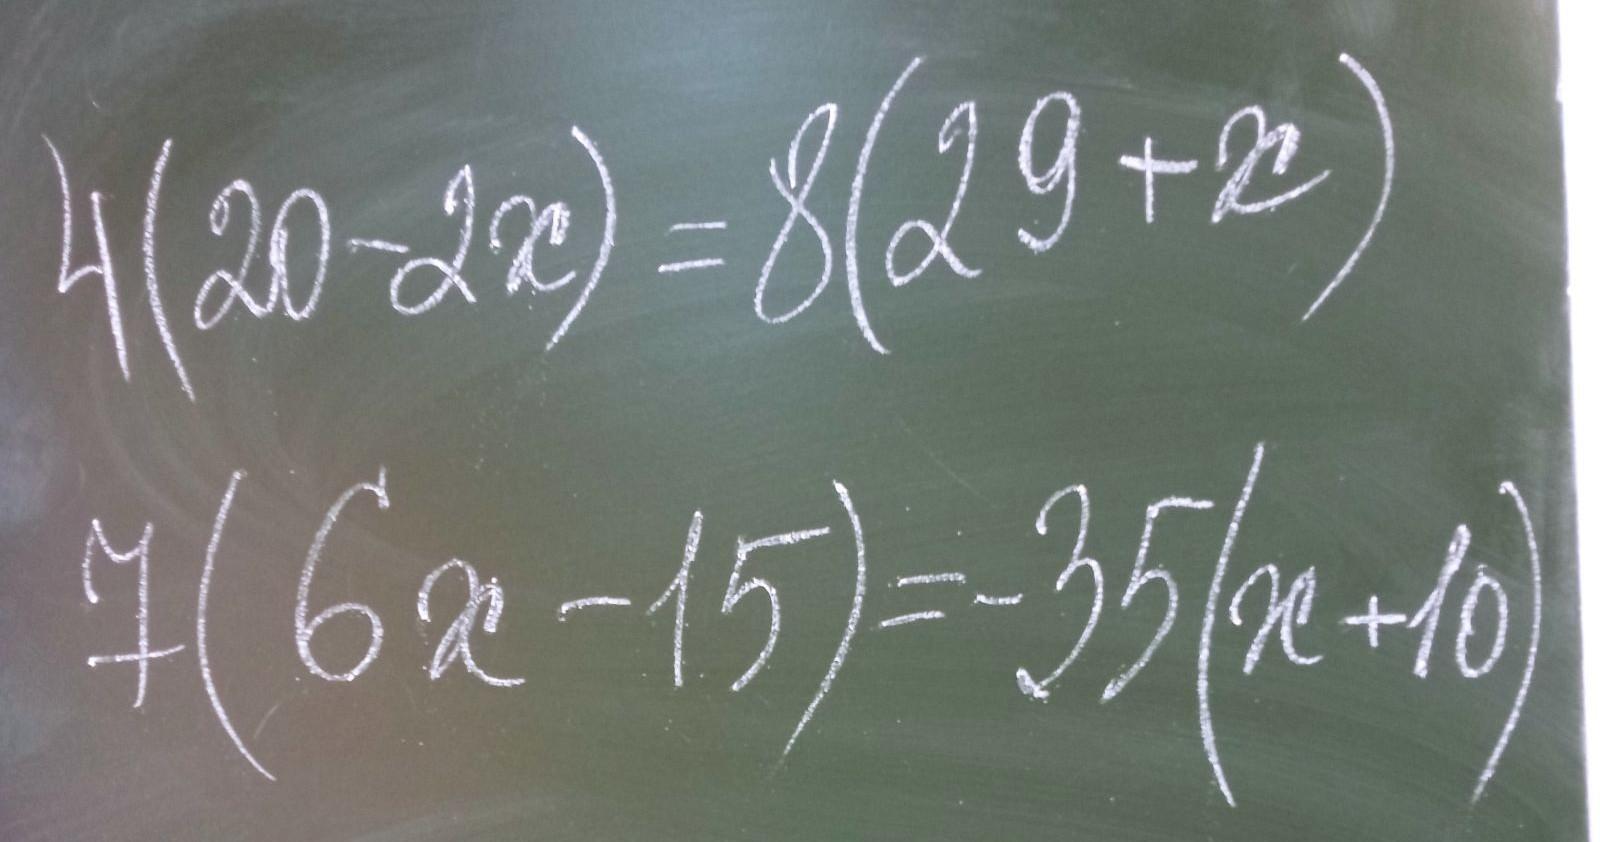 4(20-2x)=8(29+x)
7(6x-15)=-35(x+10)